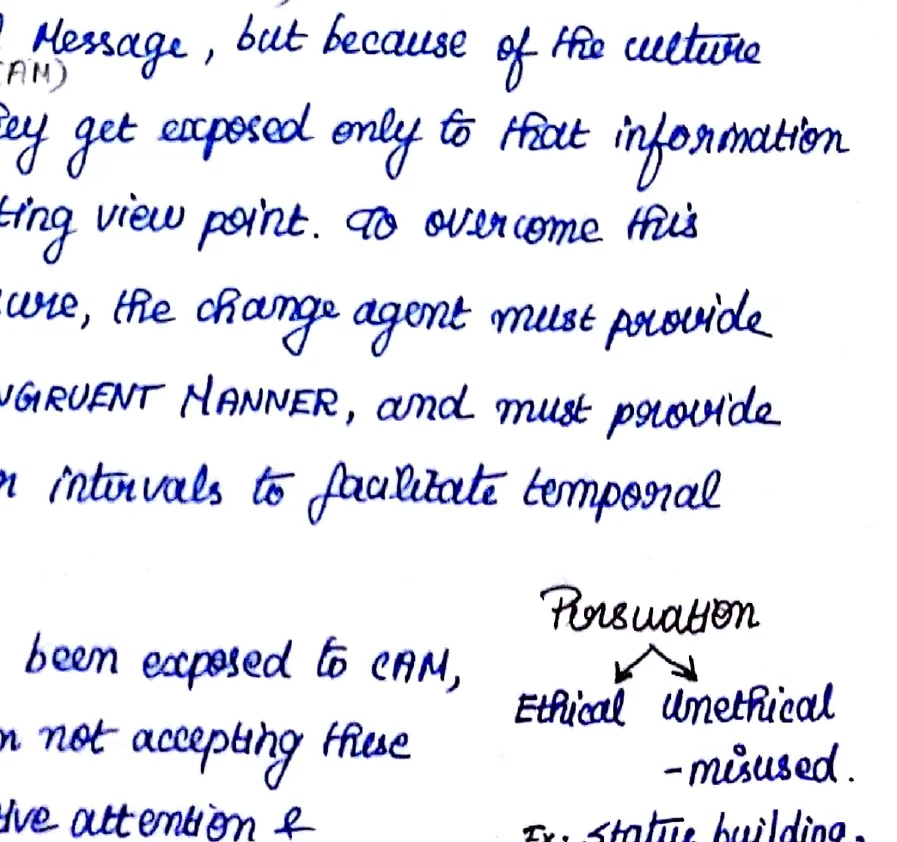 Message, but because of the culture
(AM)
get exposed only to that information
view point. To overcome this
the change agent must provide
MANNER, and must provide
intervals to facilitate temporal
Persuation
been exposed to CAM,
Ethical Unethical
not accepting these
- misused.
attention &
Ex: Statue building,